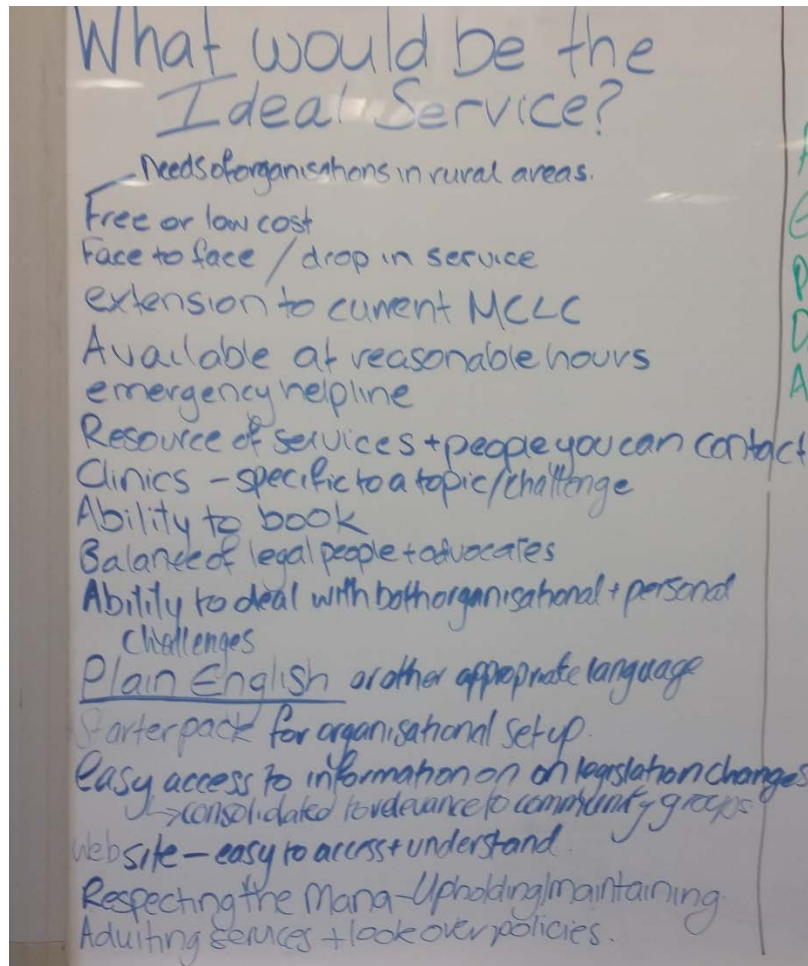 What would be the
Ideal Service?
Needs of organisations in rural areas.
Free or low cost
Face to face / drop in service
extension to current MCLC
Available at reasonable hours
emergency helpline
Resource of services + people you can contact
Clinics - specific to a topic/challenge
Ability to book
Balance of legal people + advocates
Ability to deal with both organisational + personal
challenges
Plain English or other appropriate language
Starter pack for organisational setup.
Easy access to information on on legislation changes
↳ consolidated to relevance to community groups
Website - easy to access + understand.
Respecting the Mana - Upholding/maintaining
Aduiting services + look over policies.
A
E
P
D
A